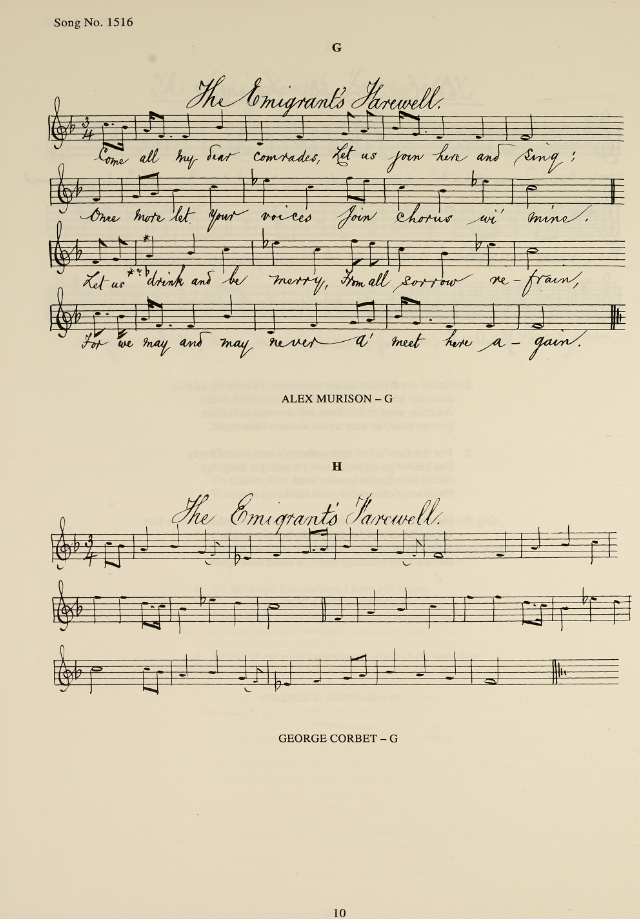 Song No. 1516
G
The Emigrant's Farewell.
3/4
Come all my dear comrades, Let us join here and sing;
Once more let your voices join chorus wi' mine.
Let us drink and be merry, From all sorrow re-frain,
For we may and may never a' meet here a-gain.
ALEX MURISON – G
H
The Emigrant's Farewell.
3/4
GEORGE CORBET – G
10